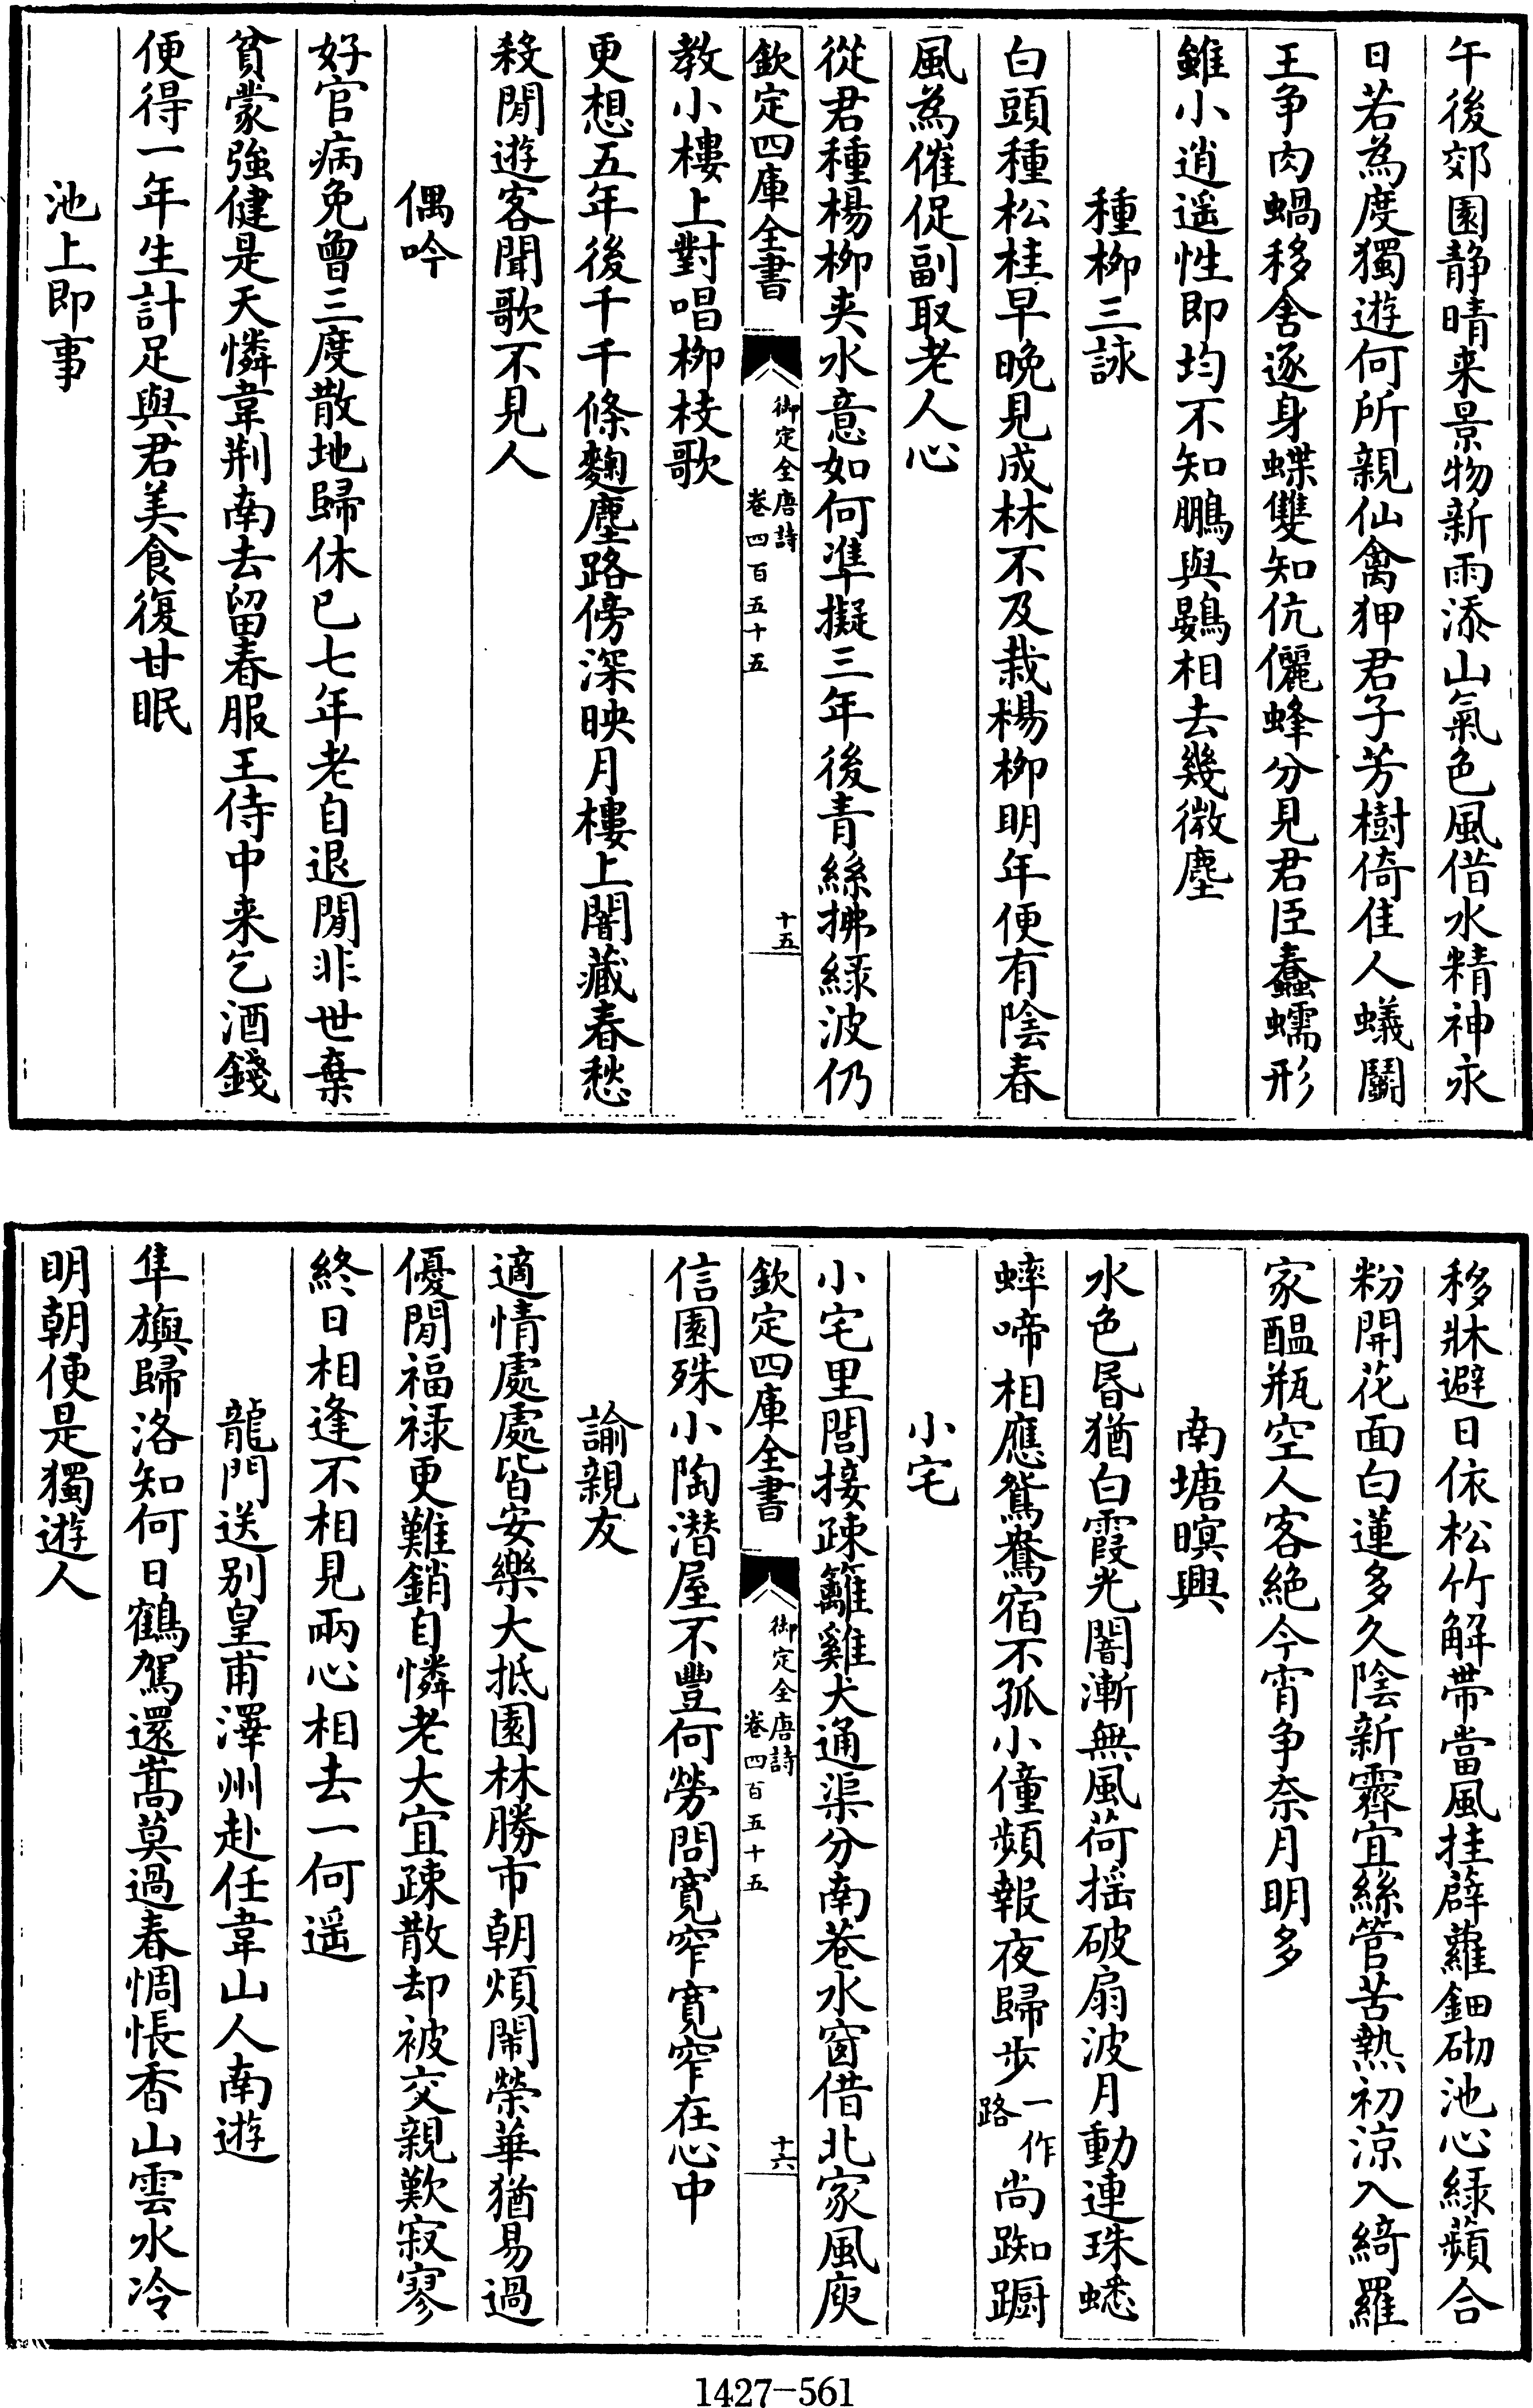 午後郊園静晴来景物新雨添山氣色風借水精神永
日若為度獨遊何所親仙禽狎君子芳樹倚佳人蟻鬬
王争肉蝸移舍逐身蝶雙知伉儷蜂分見君臣蠢蠕形
雖小逍遥性即均不知鵬與鷃相去幾微塵
種栁三詠
白頭種松桂早晚見成林不及栽楊栁明年便有陰春
風為催促副取老人心
從君種楊栁夾水意如何凖擬三年後青絲拂緑波仍
欽定四庫全書
御定全唐詩
卷四百五十五
十五
教小樓上對唱栁枝歌
更想五年後千千條麴塵路傍深映月樓上闇藏春愁
殺閒遊客聞歌不見人
偶吟
好官病免曾三度散地歸休已七年老自退閒非世棄
貧蒙強健是天憐韋荆南去留春服王侍中来乞酒錢
便得一年生計足與君美食復甘眠
池上即事
移牀避日依松竹解帶當風挂薜蘿鈿砌池心緑蘋合
粉開花面白蓮多久陰新霽宜絲管苦熱初涼入綺羅
家醖瓶空人客絶今宵争奈月明多
南塘暝興
水色昬猶白霞光闇漸無風荷摇破扇波月動連珠蟋
蟀啼相應鴛鴦宿不孤小僮頻報夜歸步一作路尚踟蹰
小宅
小宅里閭接疎籬雞犬通渠分南巷水窗借北家風庾
欽定四庫全書
御定全唐詩
卷四百五十五
十六
信園殊小陶潜屋不豐何勞問寛窄寛窄在心中
諭親友
適情處處皆安樂大抵園林勝市朝煩鬧榮華猶易過
優閒福禄更難銷自憐老大宜疎散却被交親歎寂寥
終日相逢不相見兩心相去一何遥
龍門送别皇甫澤州赴任韋山人南遊
隼旟歸洛知何日鶴駕還嵩莫過春惆悵香山雲水冷
明朝便是獨遊人
1427-561